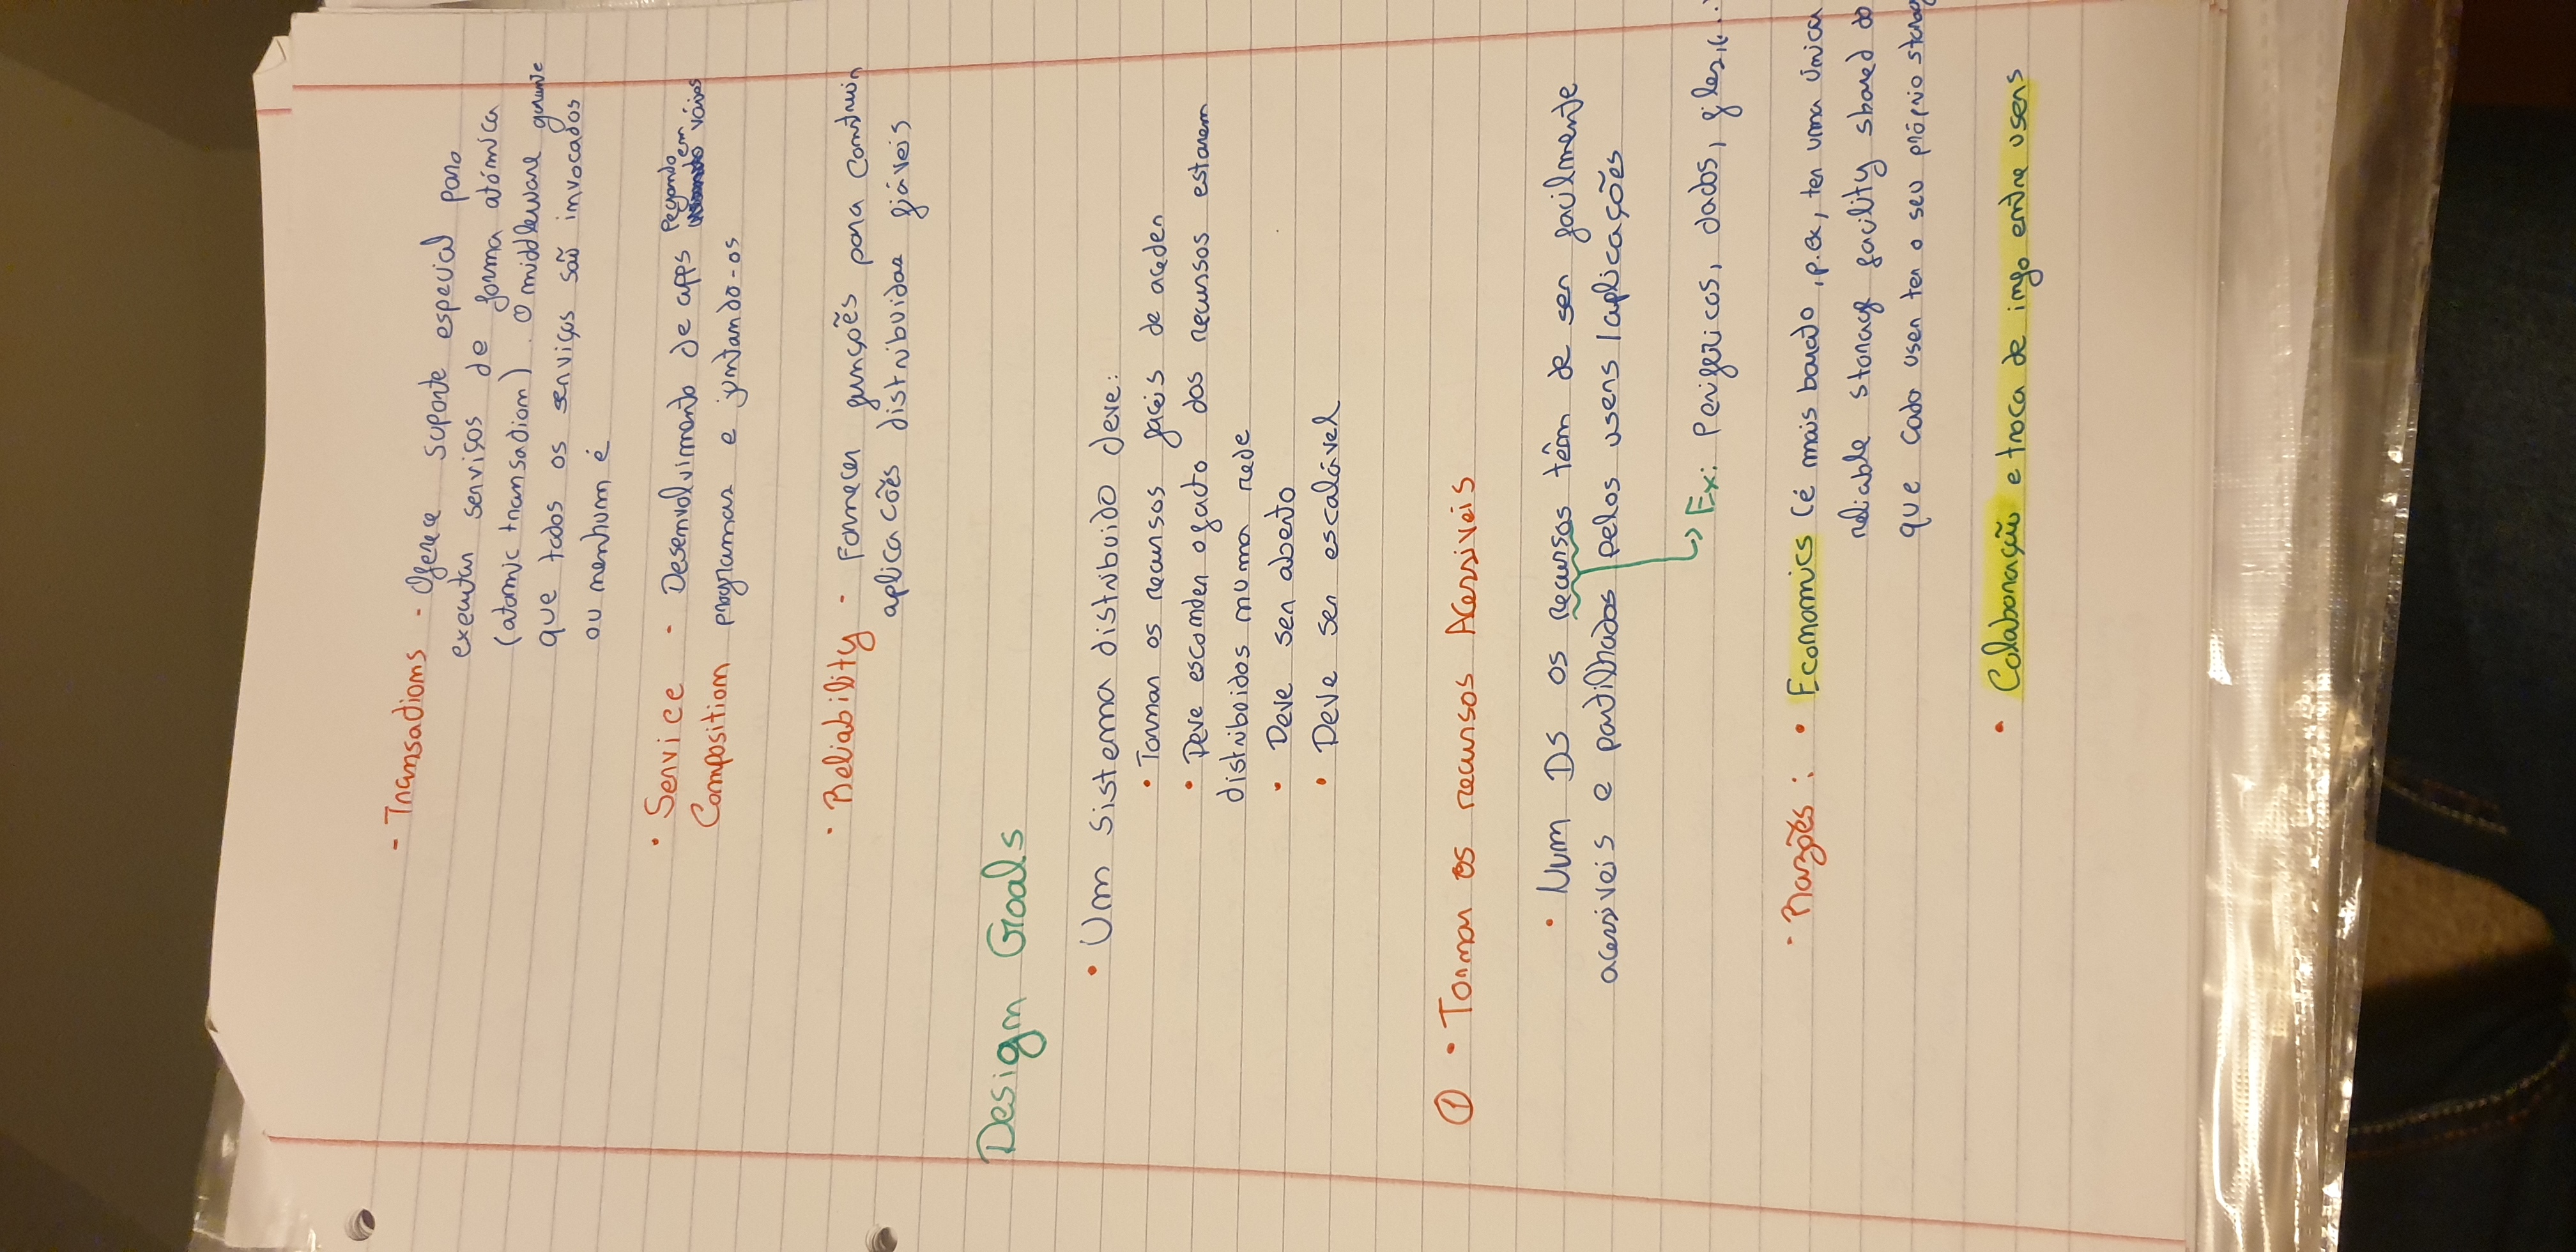 - Transactions - Oferece suporte especial para
executar serviços de forma atómica
(atomic transaction). O middleware garante
que todos os serviços são invocados
ou nenhum é
• Service - Desenvolvimento de apps pegando em vários
Composition programas e juntando-os
• Reliability - Fornecer funções para construir
aplicações distribuidas fiáveis
Design Goals
• Um sistema distribuido deve:
• Tornar os recursos faceis de aceder
• Deve esconder o facto dos recursos estarem
distribuidos numa rede
• Deve ser aberto
• Deve ser escalável
① • Tornar os recursos Acessiveis
• Num DS os recursos têm de ser facilmente
acessiveis e partilhados pelos users/aplicações
↳ Ex: Perifericos, dados, files, (...
• Razões: • Economics (é mais barato, p.ex, ter uma única
reliable storage facility shared do
que cada user ter o seu próprio storag
• Colaboração e troca de info entre users